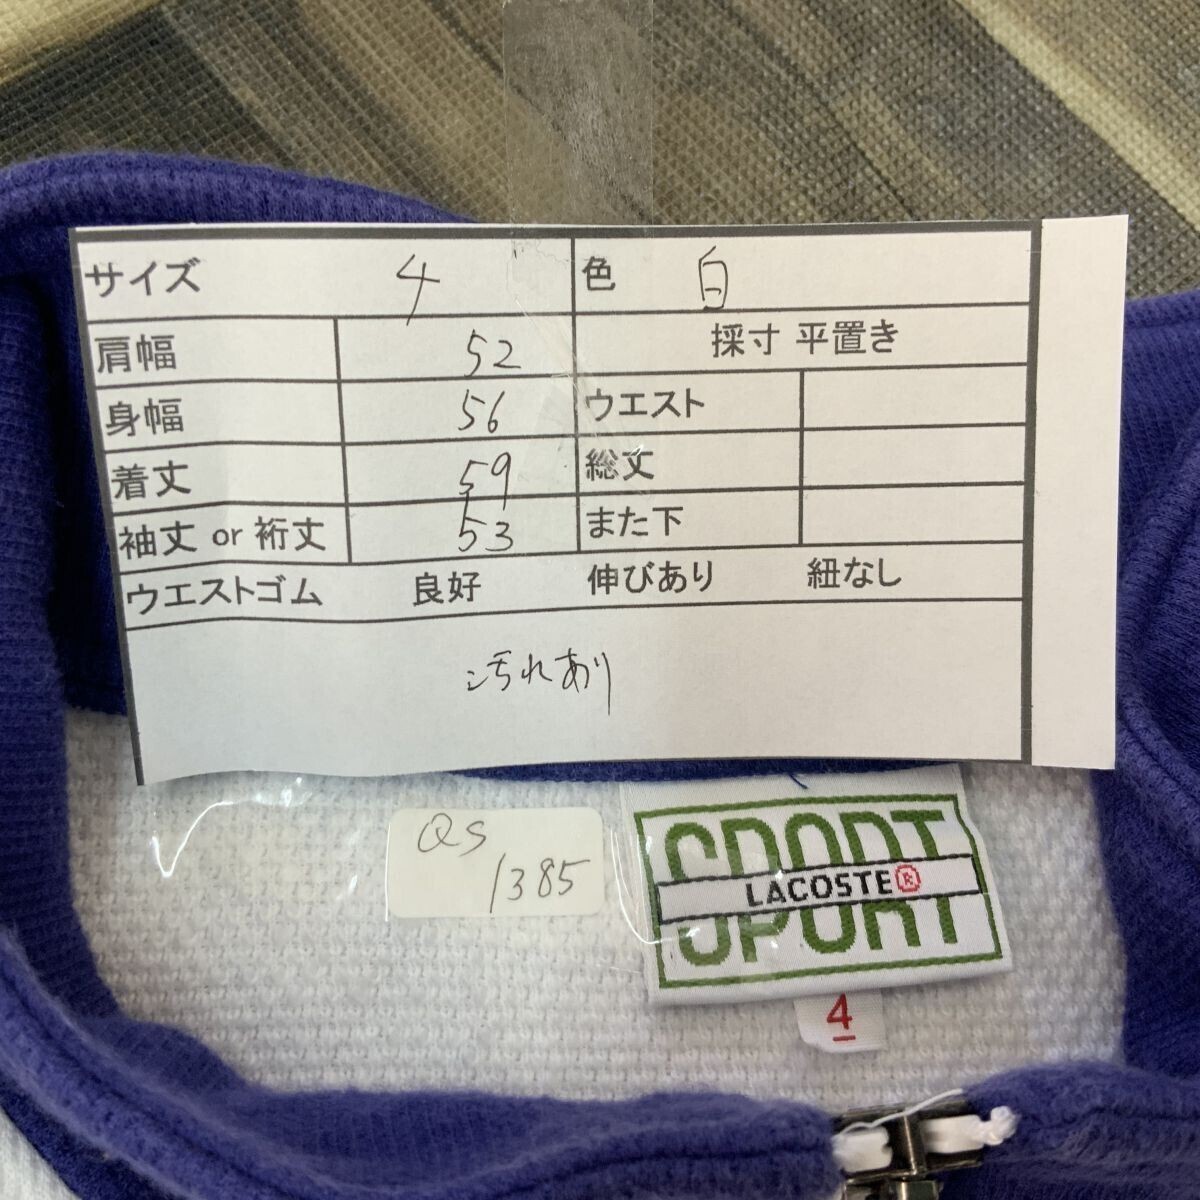 サイズ 4 色 白
肩幅 52 採寸 平置き
身幅 56 ウエスト
着丈 59 総丈
袖丈 or 裄丈 53 また下
ウエストゴム 良好 伸びあり 紐なし
汚れあり
QS
1385
SPORT
LACOSTE®
SPORT
4